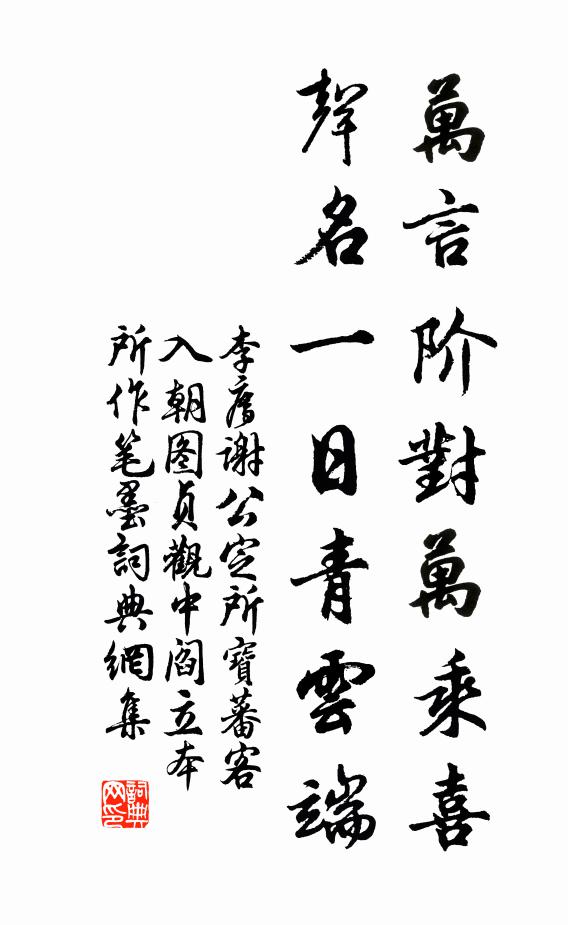 萬言阶對萬乘喜
聲名一日青雲端
李廌謝公定所寶蕃客
入朝图貞觀中阎立本
所作笔墨詞典網集
詞典
网印